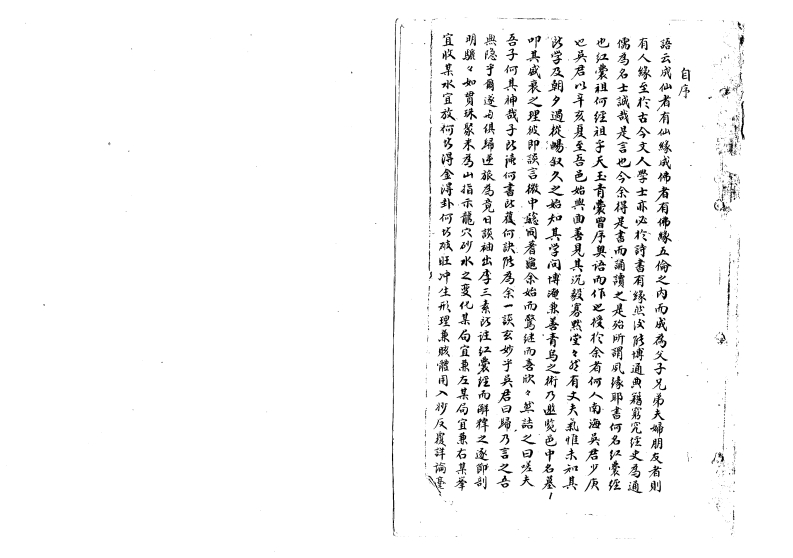 自序
語云成仙者有仙緣成佛者有佛緣五倫之內而成為父子兄弟夫婦朋友者則
有人緣至於古今文人學士亦必於詩書有緣然後能博通典籍窮究經史為通
儒為名士誠哉是言也今余得是書而誦讀之是殆所謂夙緣耶書何名紅囊經
也紅囊祖何經祖乎天玉青囊曾序奧語而作也授於余者何人南海吳君少
也吳君以辛亥夏至吾邑始與面善見其沉毅寡默堂々然有丈夫氣惟未知其
所學及朝夕過從暢叙久之始知其學問博淹兼善青烏之術乃邀覽邑中名墓
叩其盛衰之理彼即談言微中驗同蓍龜余始而驚繼而喜欣々然詰之曰嗟夫
吾子何其神哉子所讀何書所獲何訣能為余一談玄妙乎吳君曰歸乃言之吾
無隱乎爾遂与俱歸逆旅為竟日談袖出李三素所註紅囊經而解釋之逐節剖
明歷々如貫珠聚米為山指示龍穴砂水之变化某局宜兼左某局宜兼右某峯
宜收某水宜放何以得金得卦何以破旺冲生形理兼賅體用入妙反覆詳論毫